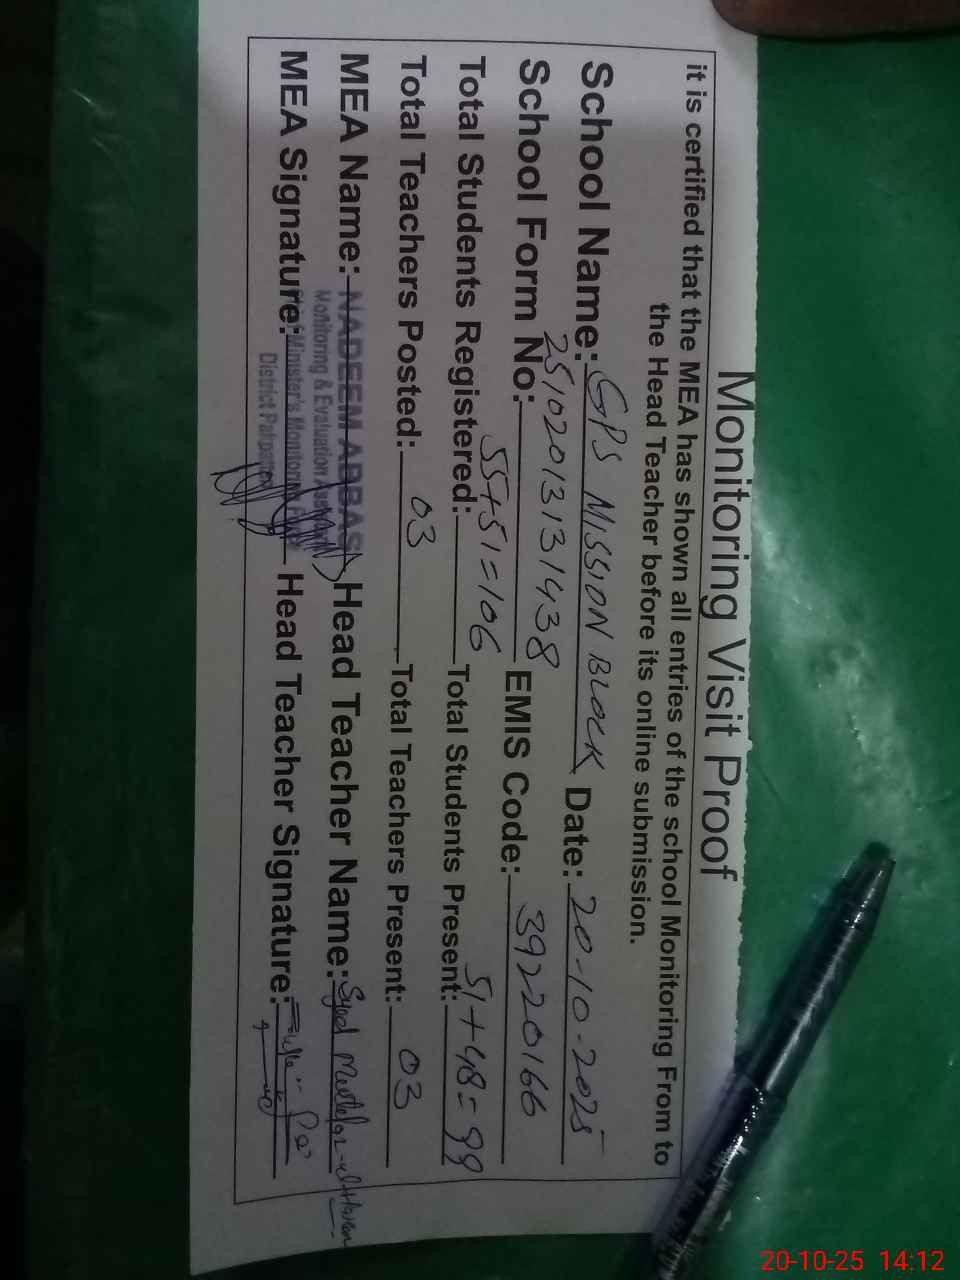 Monitoring Visit Proof
it is certified that the MEA has shown all entries of the school Monitoring From to
the Head Teacher before its online submission.
School Name: GPS MISSION BLOCK Date: 20-10-2025
School Form No: 25102013131438 EMIS Code: 39220166
Total Students Registered: 55+51=106 Total Students Present: 51+48=99
Total Teachers Posted: 03 Total Teachers Present: 03
MEA Name: NADEEM ABBAS Head Teacher Name: Syed
Monitoring & Evaluation Assistant
MEA Signature: Chief Minister's Monitoring Force Head Teacher Signature:
District Pakpattan
20-10-25 14:12